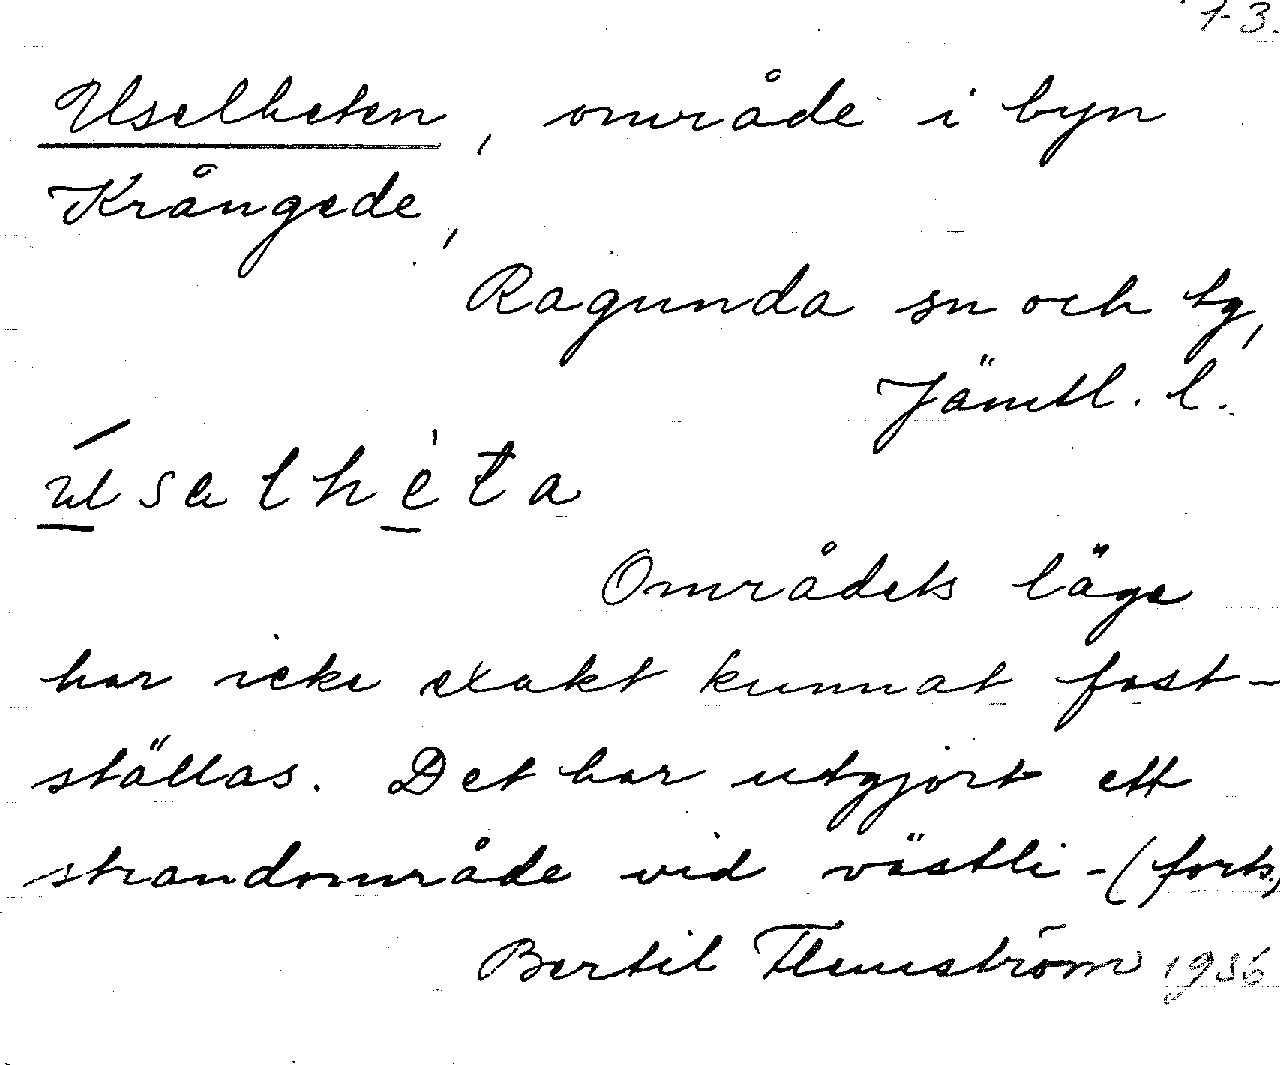 1-3.
Uselheten, område i byn
Krångede,
Ragunda sn och tg,
Jämtl. l.
úselhèta
Områdets läge
har icke exakt kunnat fast-
ställas. Det har utgjort ett
strandområde vid västli-(forts.)
Bertil Flemström 1956